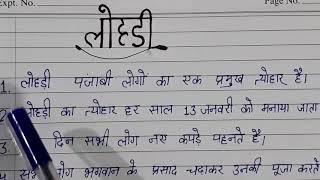 Expt. No.
Page No.
लोहड़ी
1. लोहड़ी पंजाबी लोगों का एक प्रमुख त्योहार है।
2. लोहड़ी का त्योहार हर साल 13 जनवरी को मनाया जाता
3 दिन सभी लोग नए कपड़े पहनते है।
लोग भगवान के प्रसाद चढाकर उनकी पूजा करते